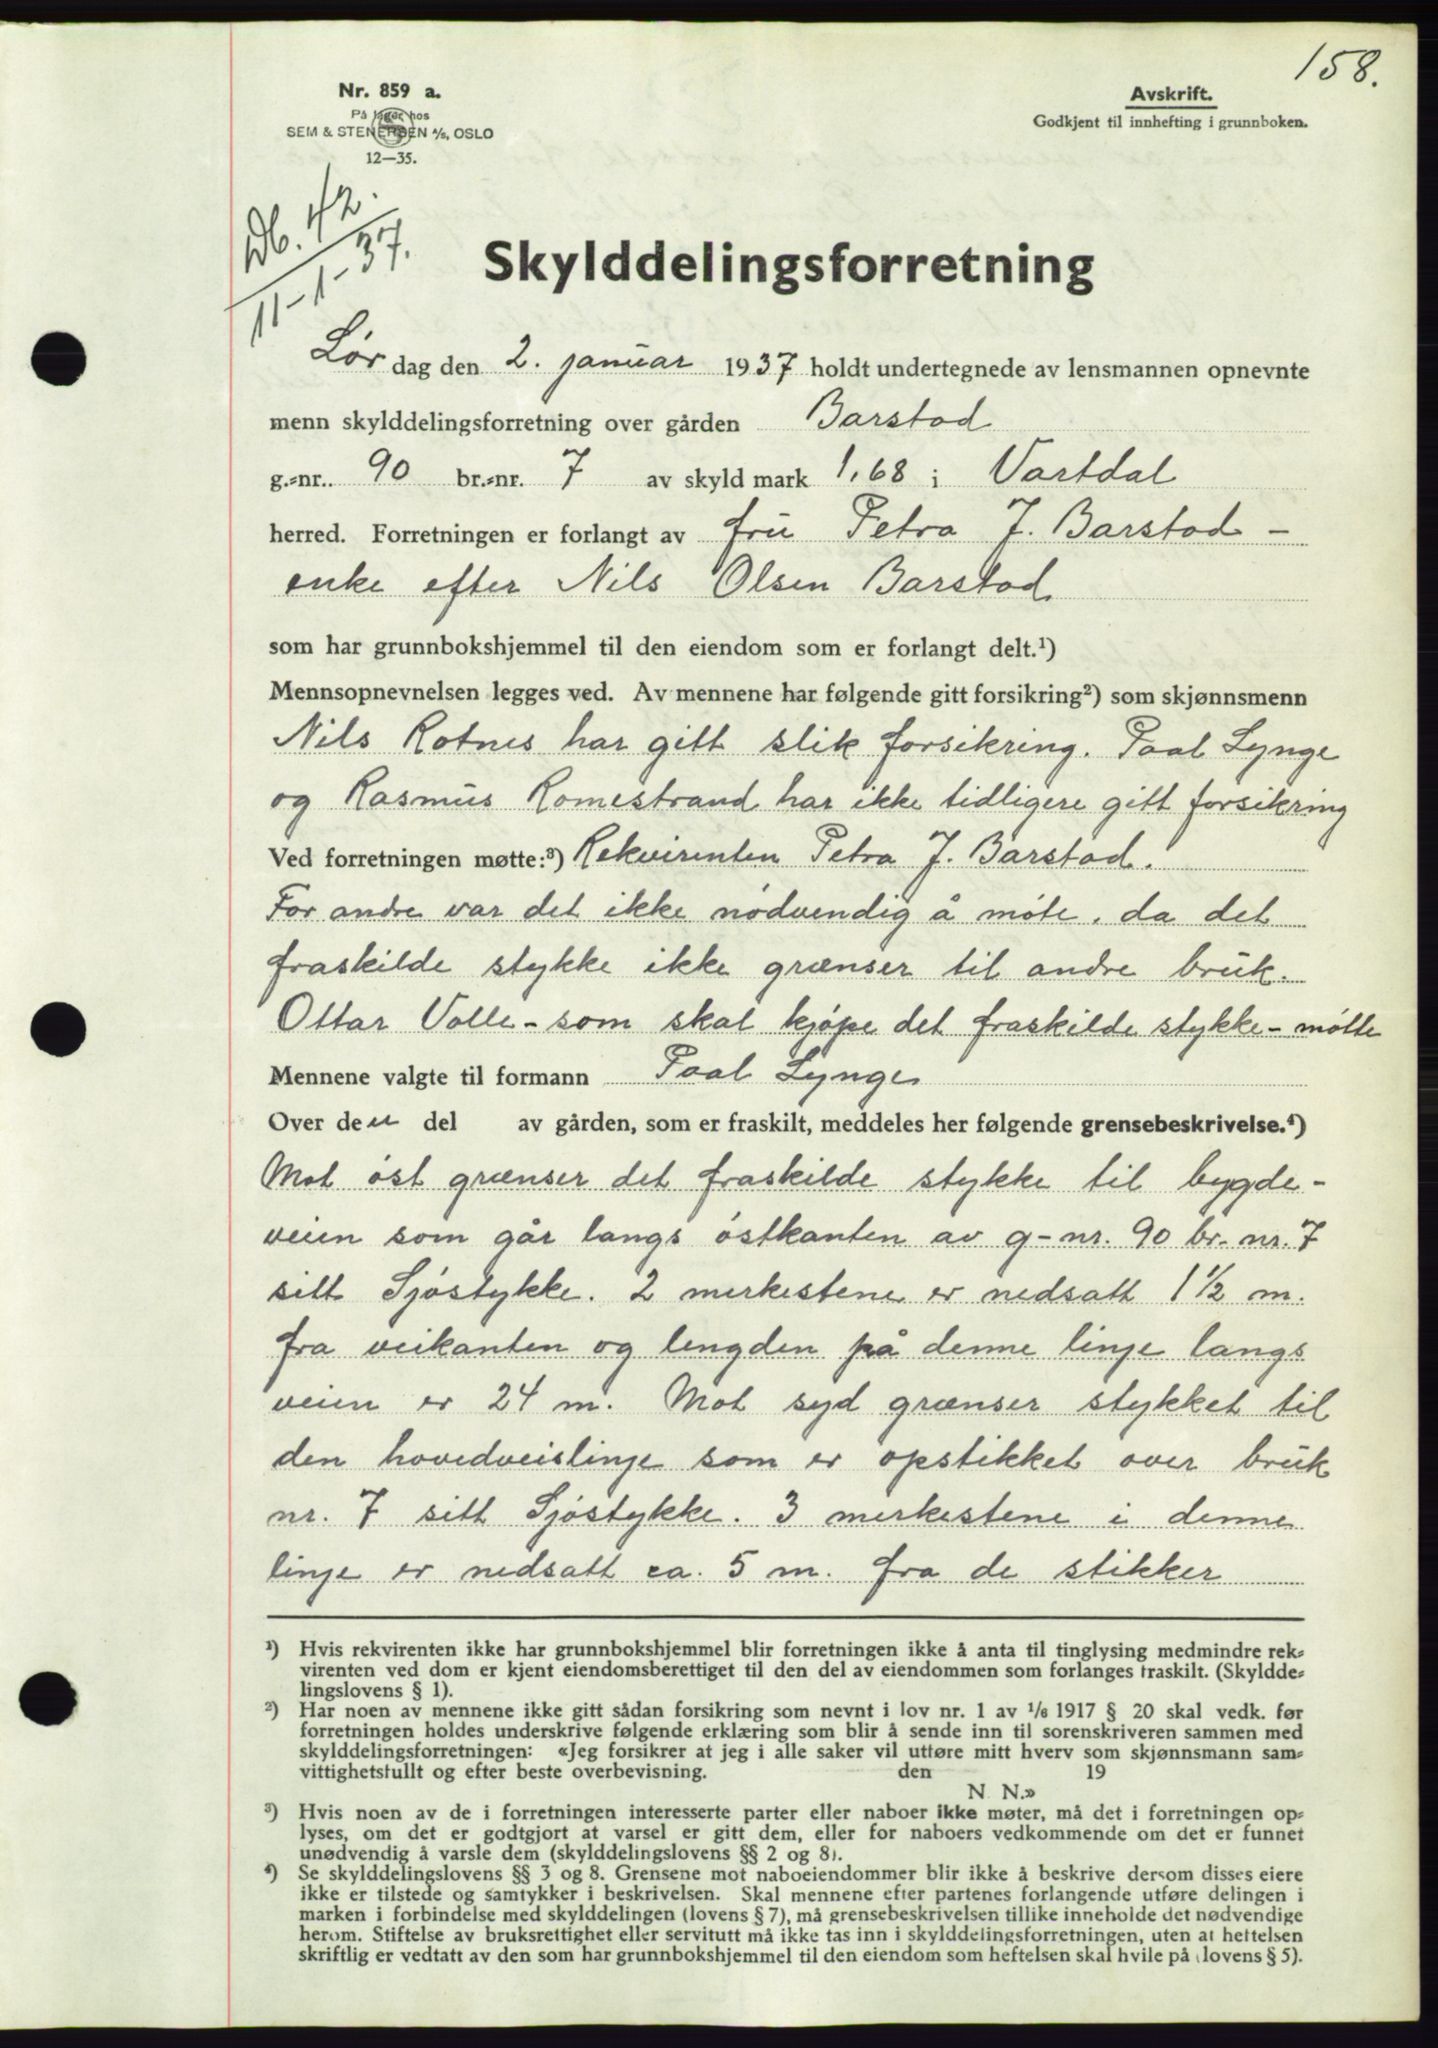 158.
Nr. 859 a.
På lager hos
SEM & STENERSEN A/S, OSLO
12—35.
Avskrift.
Godkjent til innhefting i grunnboken.
Db. 42.
11-1-37.
Skylddelingsforretning
Lør dag den 2. januar 1937 holdt undertegnede av lensmannen opnevnte
menn skylddelingsforretning over gården Barstad
g.=nr.. 90 br.=nr. 7 av skyld mark 1,68 i Vartdal
herred. Forretningen er forlangt av fru Petra J. Barstad -
enke efter Nils Olsen Barstad
som har grunnbokshjemmel til den eiendom som er forlangt delt.¹)
Mennsopnevnelsen legges ved. Av mennene har følgende gitt forsikring²) som skjønnsmenn
Nils Rotnes har gitt slik forsikring. Paal Lynge
og Rasmus Romestrand har ikke tidligere gitt forsikring
Ved forretningen møtte:³) Rekvirenten Petra J. Barstad.
For andre var det ikke nødvendig å møte, da det
fraskilde stykke ikke grænser til andre bruk.
Ottar Valle - som skal kjøpe det fraskilde stykke - møtte
Mennene valgte til formann Paal Lynge
Over den del av gården, som er fraskilt, meddeles her følgende grensebeskrivelse.⁴)
Mot øst grænser det fraskilde stykke til bygde-
veien som går langs østkanten av g-nr. 90 br. nr. 7
sitt Sjøstykke. 2 merkestene er nedsatt 1 1/2 m.
fra veikanten og lengden på denne linje langs
veien er 24 m. Mot syd grænser stykket til
den hovedveislinje som er opstikket over bruk
nr. 7 sitt Sjøstykke. 3 merkestene i denne
linje er nedsatt ca. 5 m. fra de stikker
¹) Hvis rekvirenten ikke har grunnbokshjemmel blir forretningen ikke å anta til tinglysing medmindre rek=
virenten ved dom er kjent eiendomsberettiget til den del av eiendommen som forlanges fraskilt. (Skyldde=
lingslovens § 1).
²) Har noen av mennene ikke gitt sådan forsikring som nevnt i lov nr. 1 av 1/6 1917 § 20 skal vedk. før
forretningen holdes underskrive følgende erklæring som blir å sende inn til sorenskriveren sammen med
skylddelingsforretningen: «Jeg forsikrer at jeg i alle saker vil utføre mitt hverv som skjønnsmann sam=
vittighetsfullt og efter beste overbevisning. den 19
N. N.»
³) Hvis noen av de i forretningen interesserte parter eller naboer ikke møter, må det i forretningen op=
lyses, om det er godtgjort at varsel er gitt dem, eller for naboers vedkommende om det er funnet
unødvendig å varsle dem (skylddelingslovens §§ 2 og 8).
⁴) Se skylddelingslovens §§ 3 og 8. Grensene mot naboeiendommer blir ikke å beskrive dersom disses eiere
ikke er tilstede og samtykker i beskrivelsen. Skal mennene efter partenes forlangende utføre delingen i
marken i forbindelse med skylddelingen (lovens § 7), må grensebeskrivelsen tillike inneholde det nødvendige
herom. Stiftelse av bruksrettighet eller servitutt må ikke tas inn i skylddelingsforretningen, uten at heftelsen
skriftlig er vedtatt av den som har grunnbokshjemmel til den eiendom som heftelsen skal hvile på (lovens § 5).